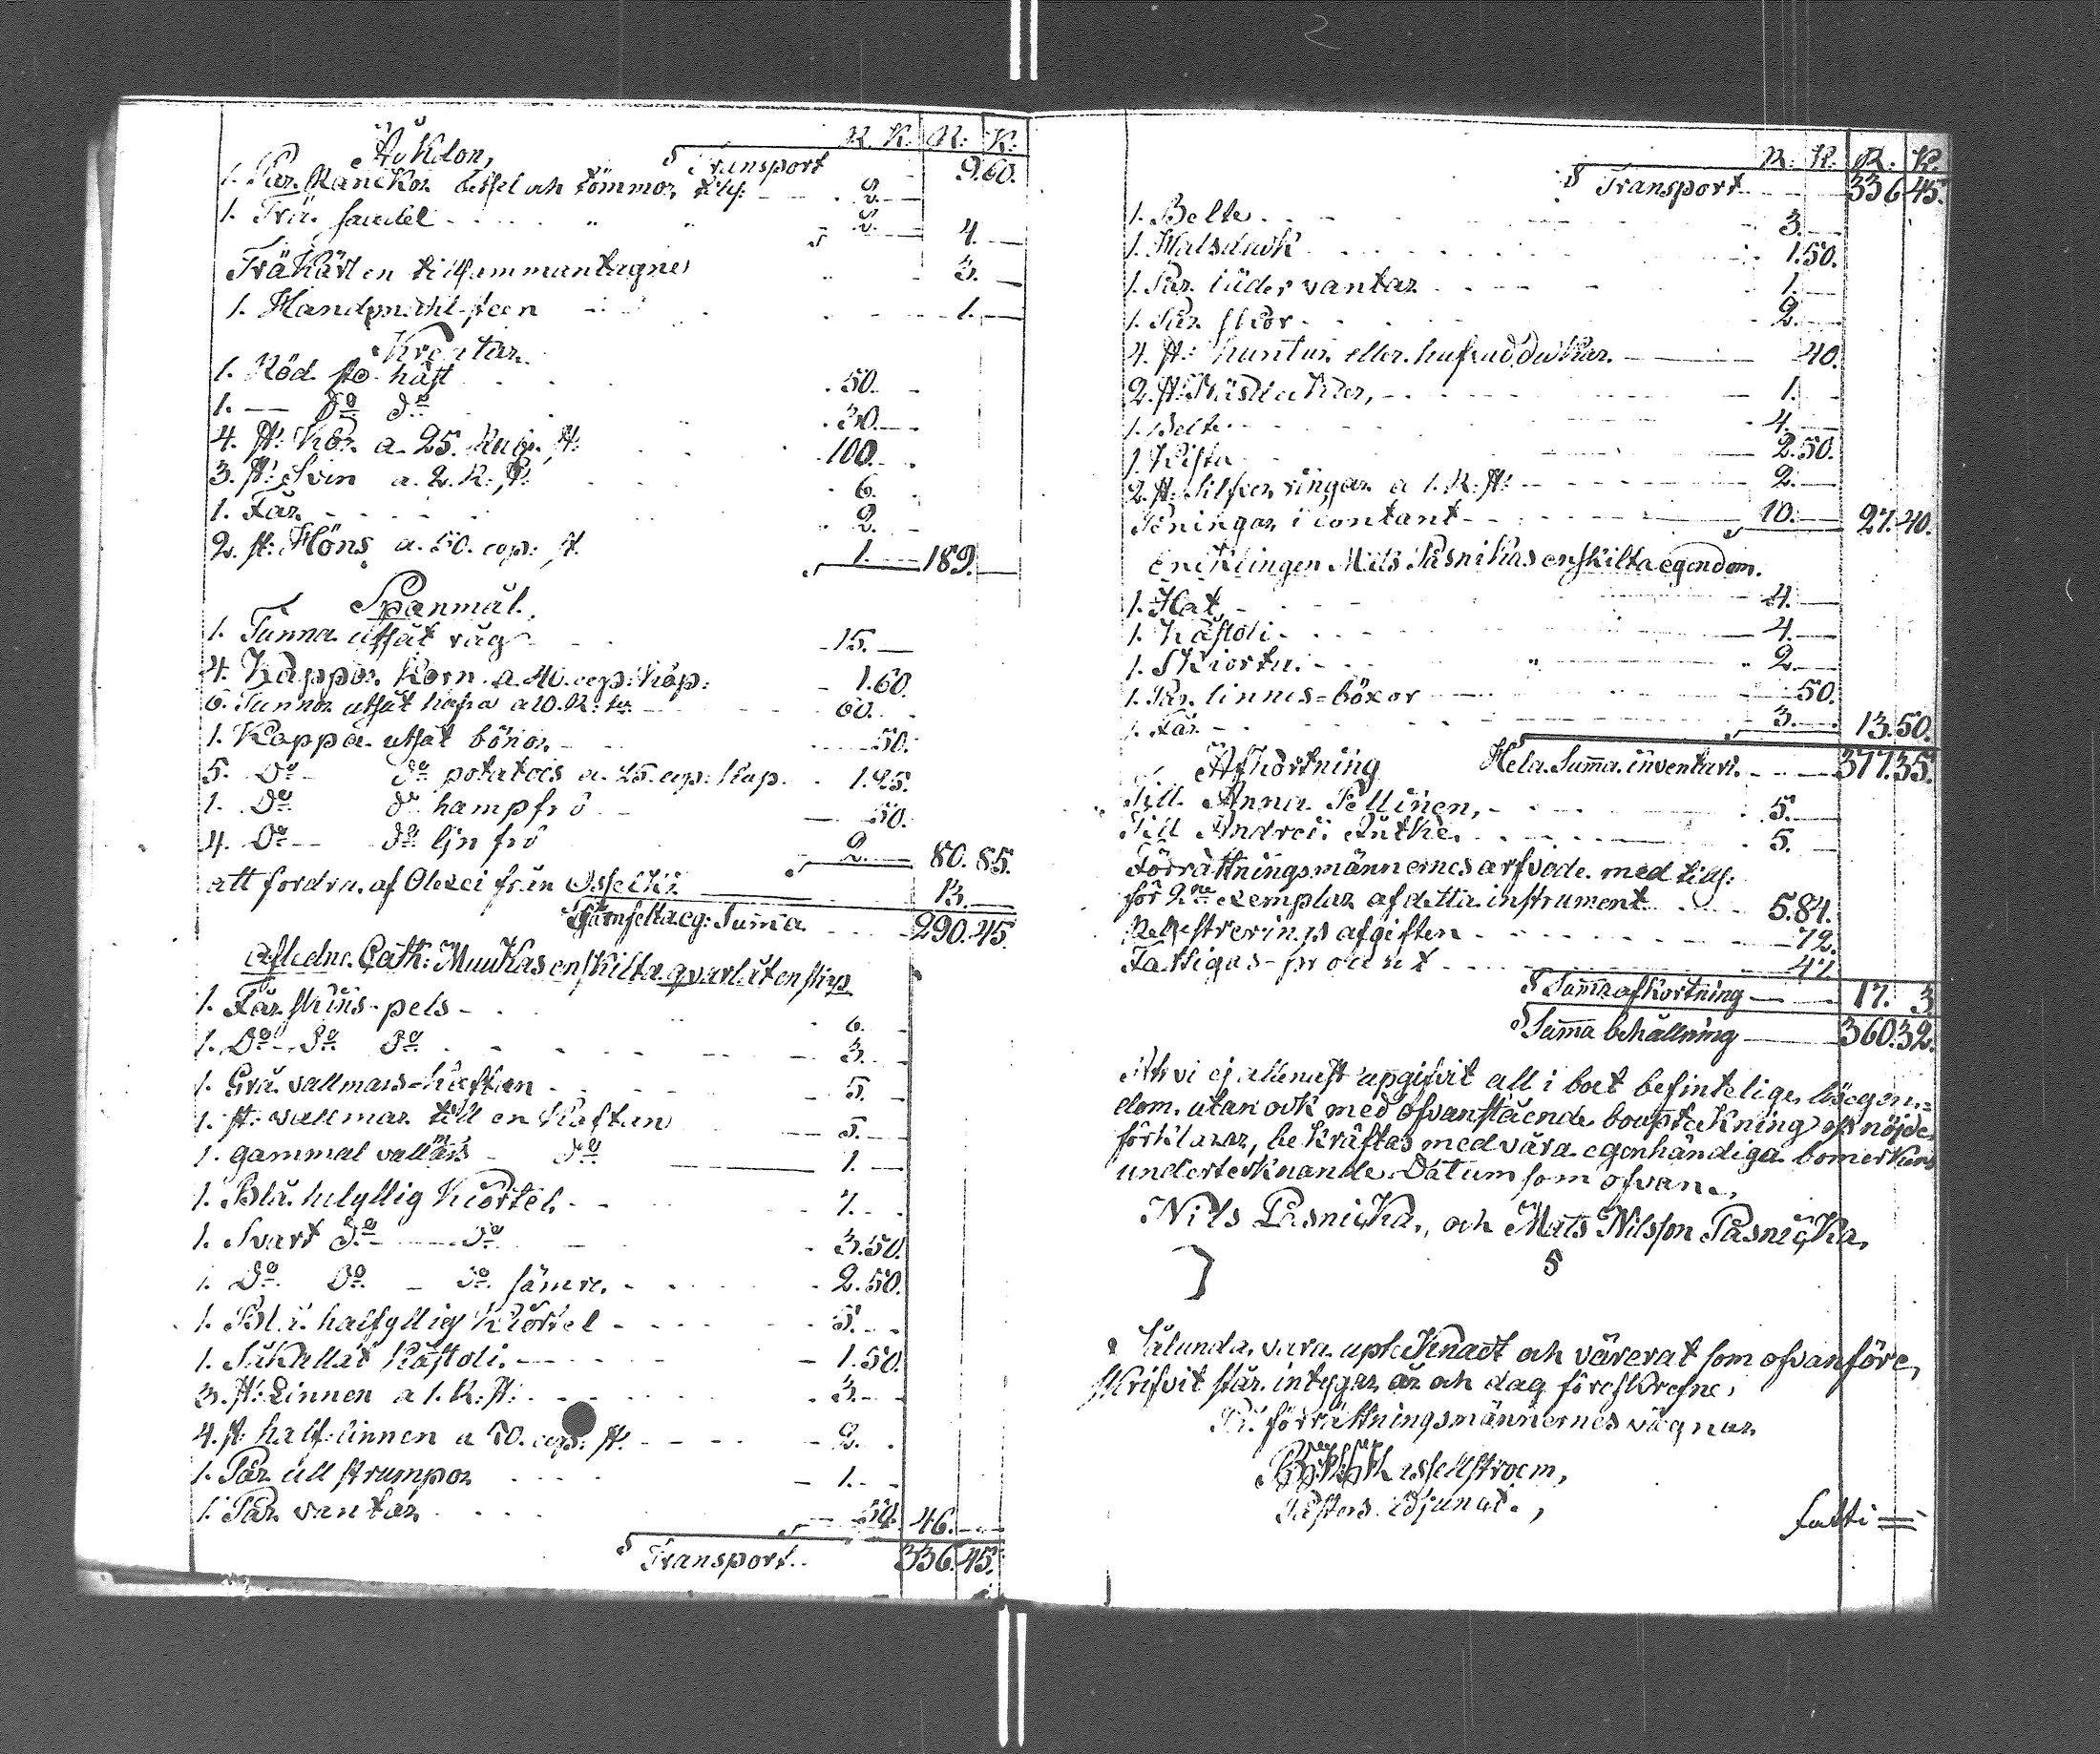 R. K. R: K:
Åkdon,
Transport 9.60.
1. Par Ranckor betsel och tömmor tills: 2.—
1. Trä sadel 2.— 4.—
Träkärl en tillsammantagne 3.—
1. Handqvarn-steen 1.—
Kreatur
1. Röd sto häst 50.
1. — Do Do 30.—
4. st: Kor a 25. Rub: st: 100.
3. st: Svin a 2. R: st: 6.
1. Får 2.
2. st: Höns a. 50. cop: st. 1.— 189.—
Spanmål.
1. Tunna utsåt råg 15.—
4. Kappor Korn a 40. cop: Kap: 1.60.
6. Tunnor utsåt hafra a 10. R: tu: 60.
1. Kappa utsåt bönor 50.
5. Do Do potatoes a. 25. cop: Kap. 1.25.
1. Do Do hampfrö 50.
4. Do Do linfrö 2.— 80.85.
att fordra af Olexei från 13.—
Samfelta eg: Summa 290.45.
afledne Cath: Muukas enskilta qvarlåtenskap
1. Fårskins-pels 6.
1. Do Do Do 3.
1. Grå vallmars-kaftan 5.
1. st: vallmar till en Kaftan 5.—
1. gammal vallmars Do 1.—
1. Blå helyllig Kiortel 7.
1. Svart Do Do 3.50.
1. Do Do Do sämre 2.50.
1. Blå halfyllig Kiortel 5.
1. Kåstoli 1.50
3. st: Linnen a 1. R: st: 3.
4. st: half-linnen a 50. cop: st. 2.
1. Par ull strumpor 1.
1. Par vantar 50. 46.—
Transport 336.45.
R: K. R: K.
Transport 336.45.
1. Belte 3.—
1. Halsduuk 1.50.
1. Par läder vantar 1.—
1. Par skor 2.—
4. st: huntur eller hufvuddukar 40.
2. st: 1.
1. Belte 4.—
1. Kista 2.50.
2. st: Silfver ringar a 1. R: st: 2.—
Peningar i contant 10.— 27.40.
Encklingen Nils Päsnikas enskilta egendom.
1. Hat 4.—
1. Kåstoli 4.—
1. Skiorta 2.
1. Par linnes-böxor 50.
1. Får 3.— 13.50.
Afkortning Hela Summa inventari. 377.35.
Till Anna Pellinen, 5.—
Till Andrei 5.—
Förrättningsmännernes arfvode med tills:
för 2ne exemplar af detta instrument 5.84.
Registrerings afgiften 72.
Fattigas-procent 47.
Summa afkortning 17. 3
Summa behållning 360.32.
Att vi ej allenast upgifvit all i boet befintelige lösegen-
dom, utan ock med ofvanstående boupteckning oss nöjde
förklarar, bekräftas med våra egenhändiga bomerkens
underteknande Datum som ofvan.
Nils Päsnicka, och Mats Nilsson Päsnicka,
Sålunda vara uptecknadt och värerat som ofvanföre
skrifvit står, intygar år och dag föreskrefne,
På förrättningsmännernes vägnar
Pastors Adjunct.,
Fatti=